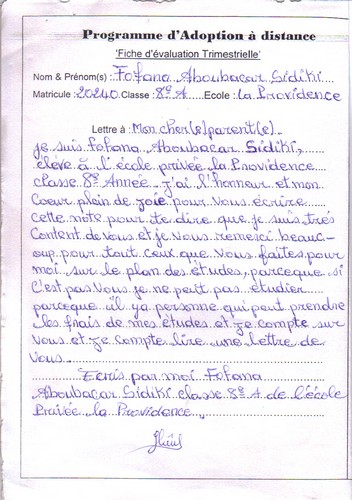 Programme d'Adoption à distance
'Fiche d'évaluation Trimestrielle'
Nom & Prénom(s) : Fofana Aboubacar Sidiki
Matricule : 20240 Classe : 8e A Ecole : la Providence
Lettre à : Mon cher(e) parent(e)
je suis Fofana Aboubacar Sidiki,
élève à l'école privée la Providence
classe 8e Année j'ai l'honneur et mon
Coeur plein de joie pour Vous écrire
cette note pour te dire que je suis très
Content de Vous et je Vous remerci beauc-
oup pour tout ceux que Vous faites pour
moi sur le plan des études, parceque si
C'est pas Vous je ne peut pas étudier
parceque il ya personne qui peut prendre
les frais de mes études et je compte sur
Vous et je compte lire une lettre de
Vous
Ecris par moi Fofana
Aboubacar Sidiki classe 8e A de l'école
Privée la Providence